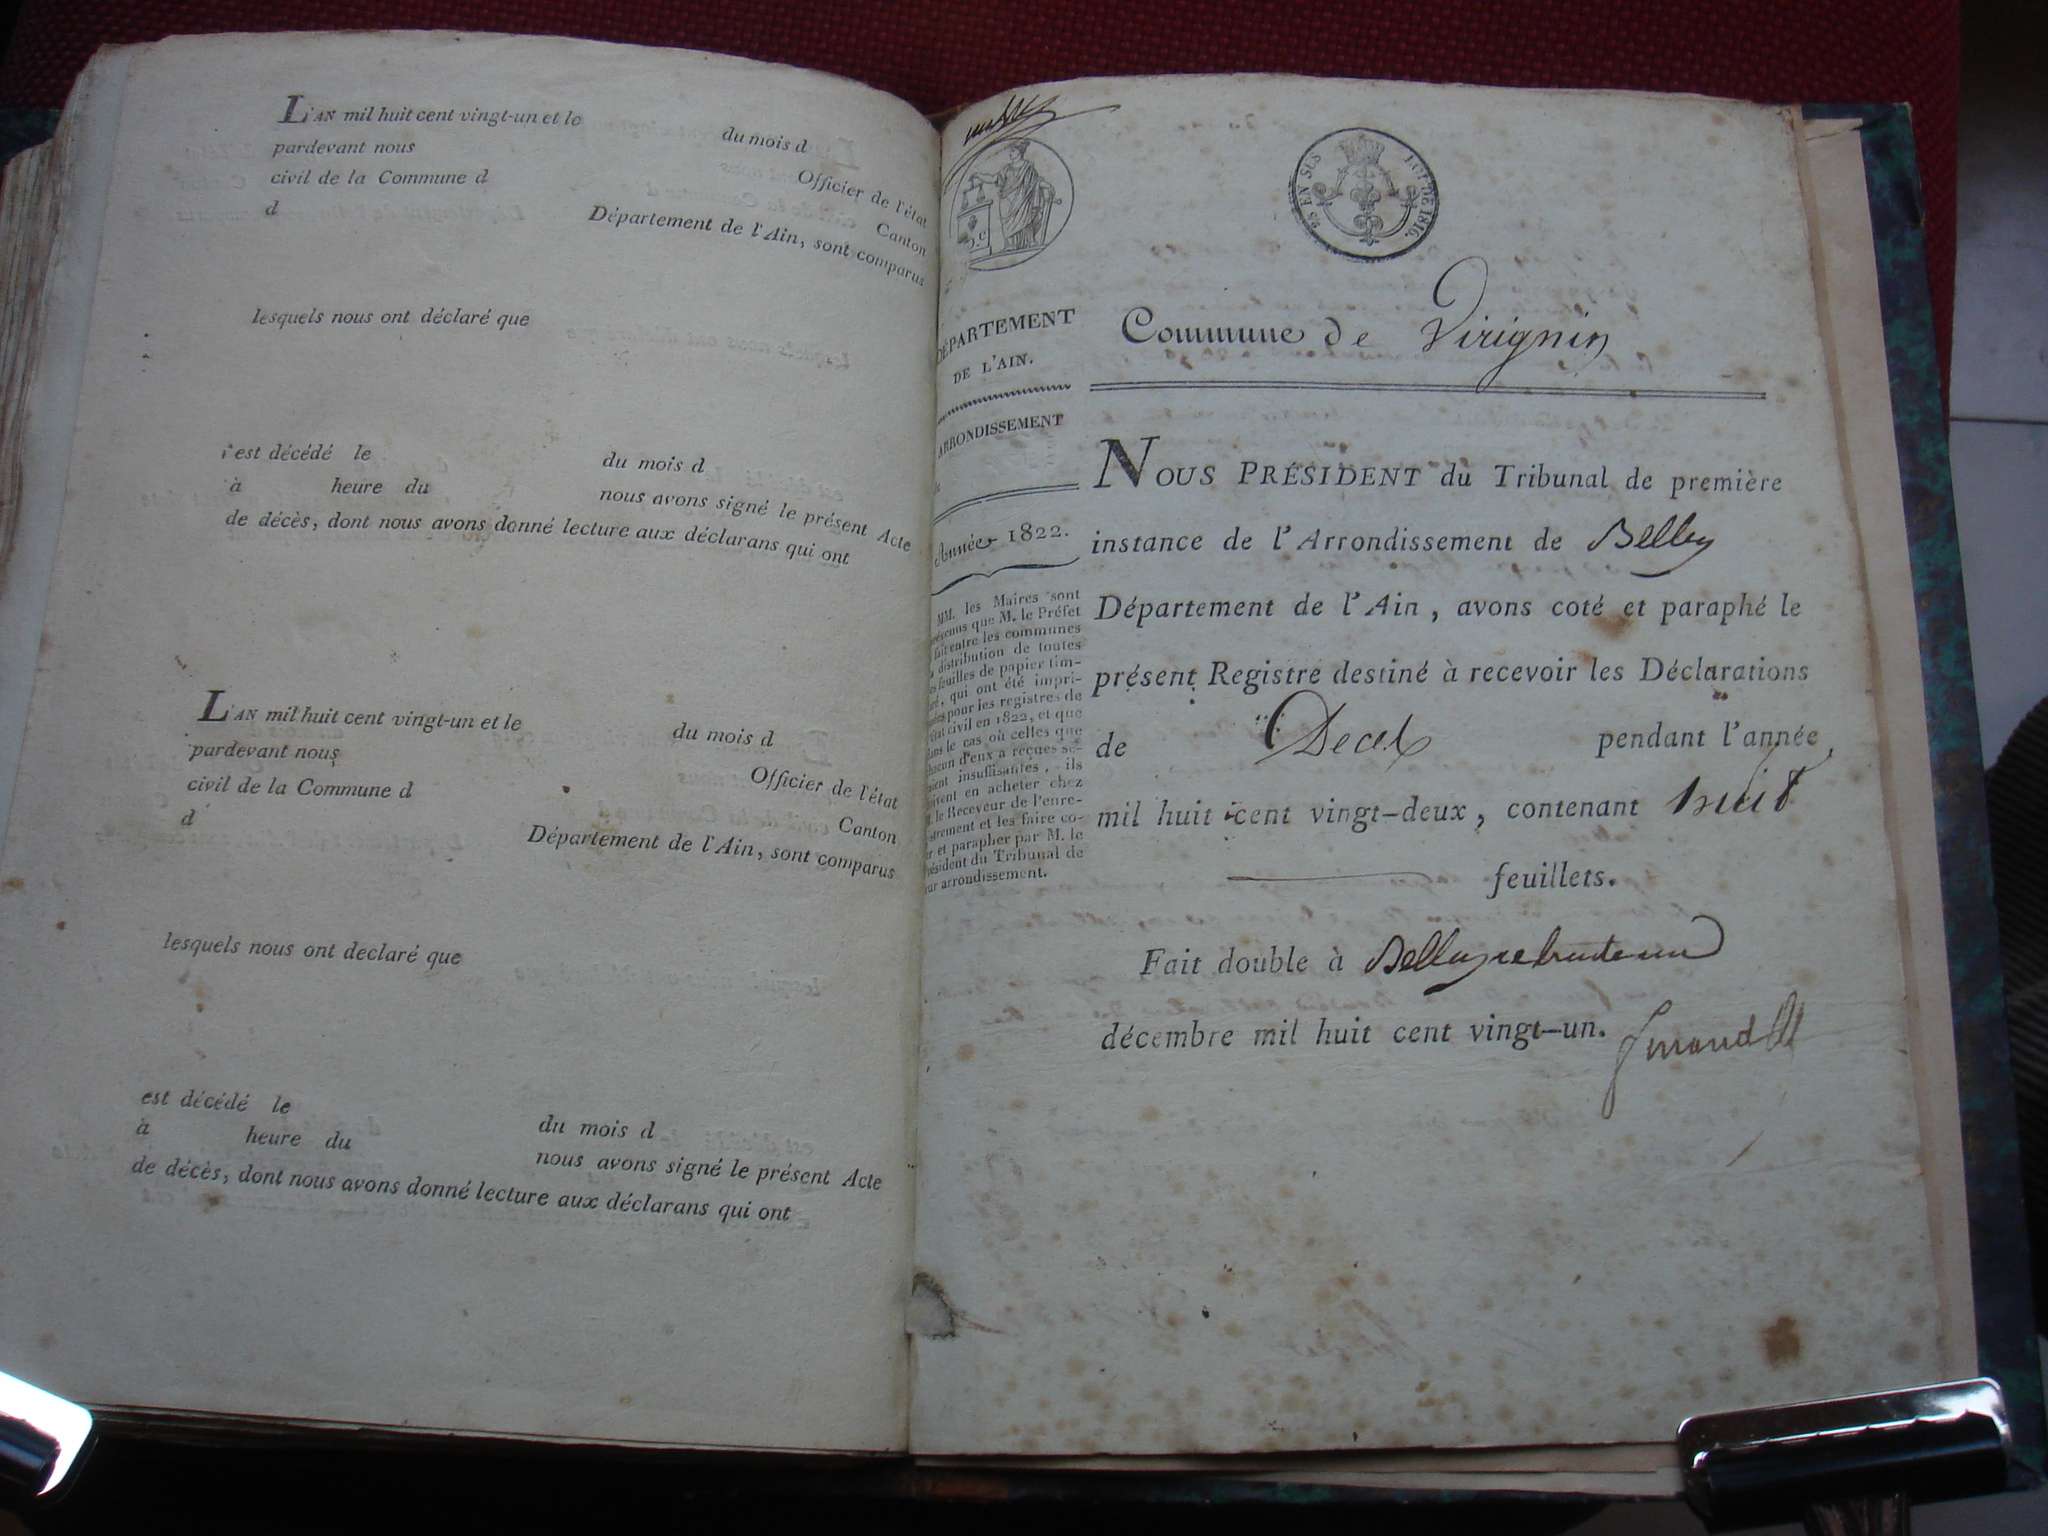 L'AN mil huit cent vingt-un et le du mois d
pardevant nous Officier de l'état
civil de la Commune d Canton
d Département de l'Ain, sont comparus
lesquels nous ont déclaré que
est décédé le du mois d
à heure du nous avons signé le présent Acte
de décès, dont nous avons donné lecture aux déclarans qui ont
L'AN mil huit cent vingt-un et le du mois d
pardevant nous Officier de l'état
civil de la Commune d Canton
d Département de l'Ain, sont comparus
lesquels nous ont declaré que
est décédé le du mois d
à heure du nous avons signé le présent Acte
de décès, dont nous avons donné lecture aux déclarans qui ont
EN SUS LOI DE 1816.
DÉPARTEMENT
DE L'AIN.
ARRONDISSEMENT
Année 1822.
MM. les Maires sont
prévenus que M. le Préfet
fait entre les communes
la distribution de toutes
les feuilles de papier tim-
bré, qui ont été impri-
mées pour les registres de
l'état civil en 1822, et que
dans le cas où celles que
chacun d'eux a reçues se-
raient insuffisantes, ils
doivent en acheter chez
M. le Receveur de l'enre-
gistrement et les faire co-
ter et parapher par M. le
Président du Tribunal de
leur arrondissement.
Commune de Virignin
NOUS PRÉSIDENT du Tribunal de première
instance de l'Arrondissement de Belley
Département de l'Ain, avons coté et paraphé le
présent Registre destiné à recevoir les Déclarations
de Deces pendant l'année
mil huit cent vingt-deux, contenant huit
feuillets.
Fait double à Belley le trente un
décembre mil huit cent vingt-un.